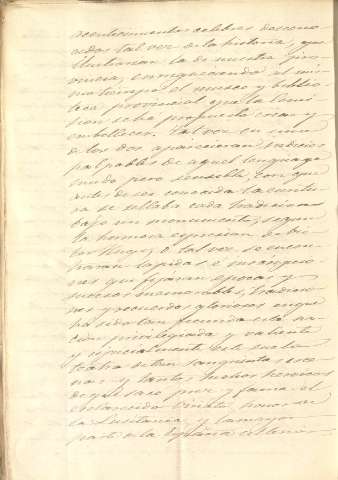 acontecimientos celebres descono-
cidos tal vez de la historia, que
ilustrarian la de nuestra pro-
vincia, enriqueciendo al mis-
mo tiempo el museo y biblio-
teca provincial que la Comi-
sion se ha propuesto crear y
embellecer. Tal vez en uno
de los dos apareceran indicios
palpables de aquel lenguage
mudo pero sensible, con que
antes de ser conocida la escritu-
ra se sellaba cada tradicion
bajo un monumento, segun
la hermosa expresion de Vic-
tor Hugo; ó tal vez se encon-
traran lapidas é inscripcio-
nes que fijaran epocas y
sucesos memorables, tradicio-
nes y recuerdos gloriosos en que
ha sido tan fecunda esta na-
cion privilegiada y valiente
y especialmente este suelo
teatro de tan sangrientas esce-
nas y tantos hechos heroicos
de que saco prez y fama el
esclarecido Viriato honor de
la Lusitania, y la mayor
parte de la España